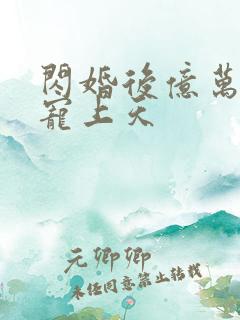 閃婚後億萬
寵上天
元卿卿
未任同意禁止轉載